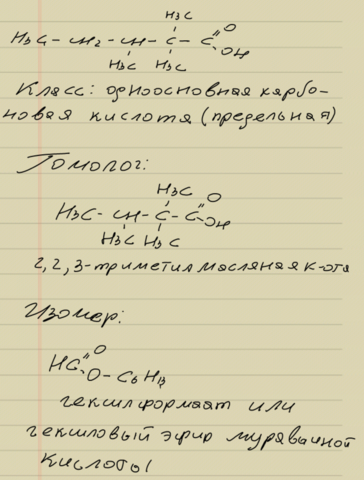 H₃C
H₃C – CH₂ – CH – C – C = O
OH
H₃C H₃C
Класс: одноосновная карбо-
новая кислота (предельная)
Гомолог:
H₃C
H₃C – CH – C – C = O
OH
H₃C H₃C
2,2,3-триметилмасляная к-ота
Изомер:
HC = O
O – C₆H₁₃
гексилформаат или
гексиловый эфир муравьиной
кислоты